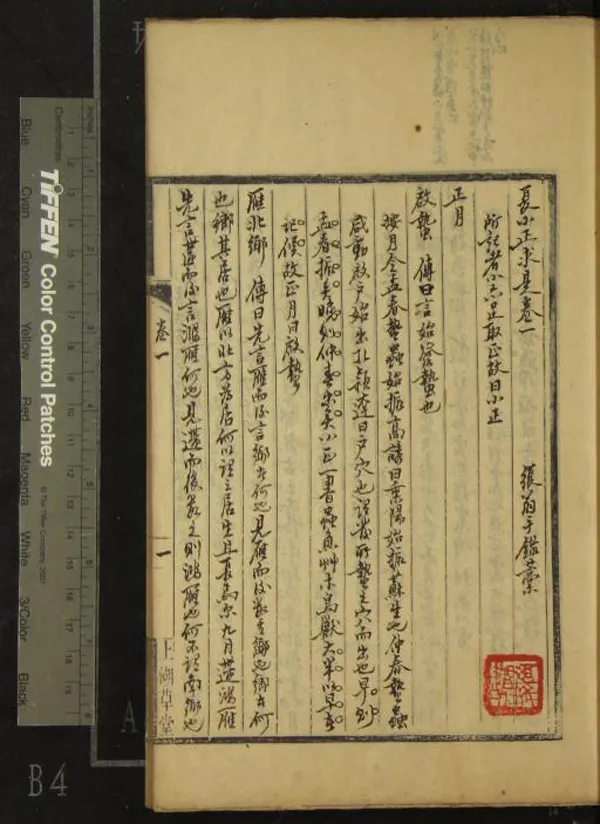 夏小正求是卷一
張 于鍇藁
所記者小而正取正故曰小正
正月
啟蟄 傳曰言始發蟄也
按月令孟春蟄蟲始振高誘曰乘陽始振蘇生也仲春蟄蟲
咸動啟戶始出孔穎達曰戶穴也謂發所蟄之穴而出也早則
孟春振矣晚則仲春出矣小正一書蟲魚艸木鳥獸大率以早者
記候故正月曰啟蟄
雁北鄉 傳曰先言雁而後言鄉者何也見雁而後數其鄉也鄉者何
也鄉其居也雁以北方為居何以謂之居生且長焉爾九月遰鴻雁
先言遰而後言鴻雁何也見遰而後數之則鴻雁也何不謂南鄉也
卷一
一
上湖草堂
TIFFEN Color Control Patches
© The Tiffen Company, 2007
Centimetres
Inches
Blue
Cyan
Green
Yellow
Red
Magenta
White
3/Color
Black
A
B4